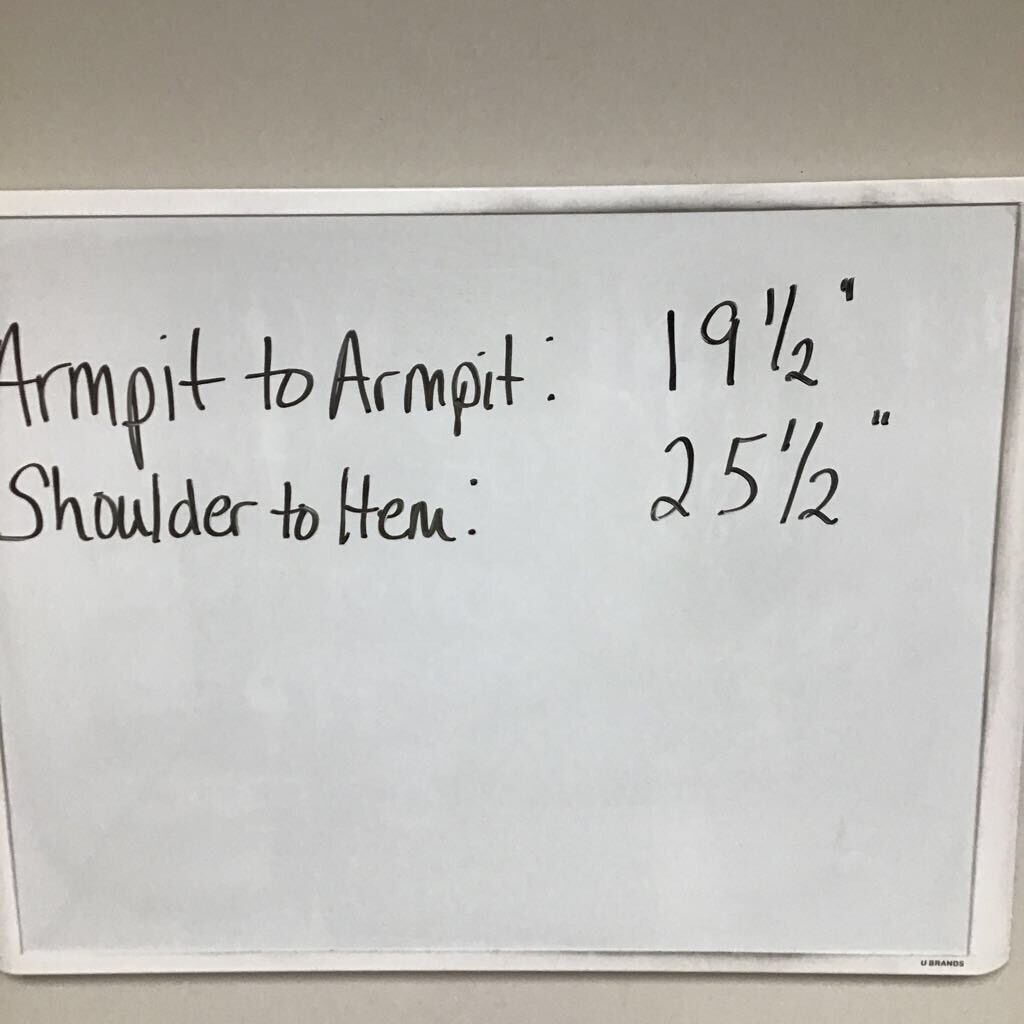 Armpit to Armpit: 19 1/2"
Shoulder to Hem: 25 1/2"
U BRANDS